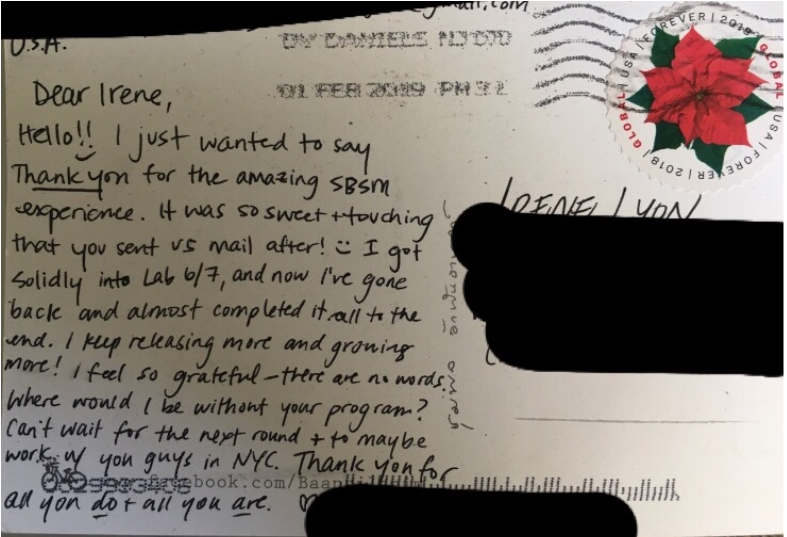 gmail.com
U.S.A.
DV DANIELS NJ 070
01 FEB 2019 PM 3 L
GLOBAL | USA | FOREVER | 2018 | GLOBAL | USA | FOREVER | 2018 |
Dear Irene,
Hello!! I just wanted to say
Thank you for the amazing SBSM
experience. It was so sweet + touching
that you sent us mail after! I got
solidly into Lab 6/7, and now I've gone
back and almost completed it all to the
end. I keep releasing more and growing
more! I feel so grateful – there are no words.
Where would I be without your program?
Can't wait for the next round + to maybe
work w/ you guys in NYC. Thank you for
all you do + all you are. ♡
IRENE LYON
facebook.com/Baan